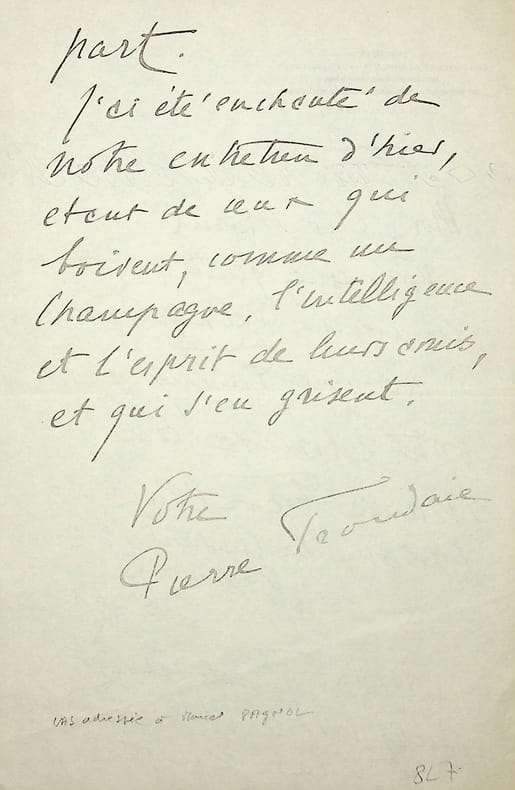 part.
J'ai été enchanté de
notre entretien d'hier,
étant de ceux qui
boivent, comme un
Champagne, l'intelligence
et l'esprit de leurs amis,
et qui s'en grisent.
Votre
Pierre Frondaie
LAS adressée à Marcel PAGNOL